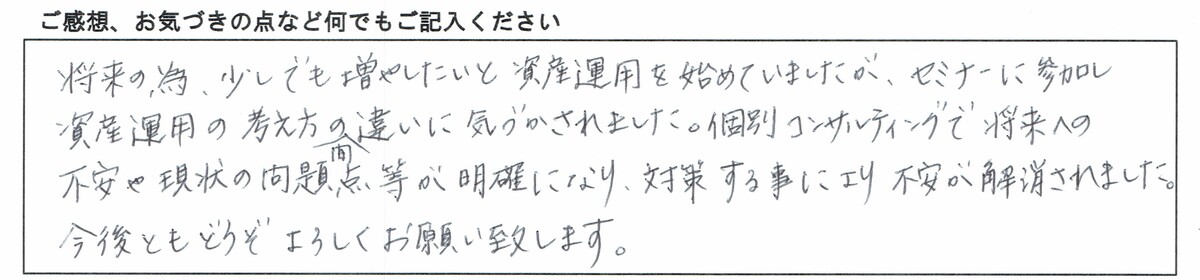 ご感想、お気づきの点など何でもご記入ください
将来の為、少しでも増やしたいと資産運用を始めていましたが、セミナーに参加し
資産運用の考え方の間違いに気づかされました。個別コンサルティングで将来への
不安や現状の問題点等が明確になり、対策する事により不安が解消されました。
今後ともどうぞよろしくお願い致します。